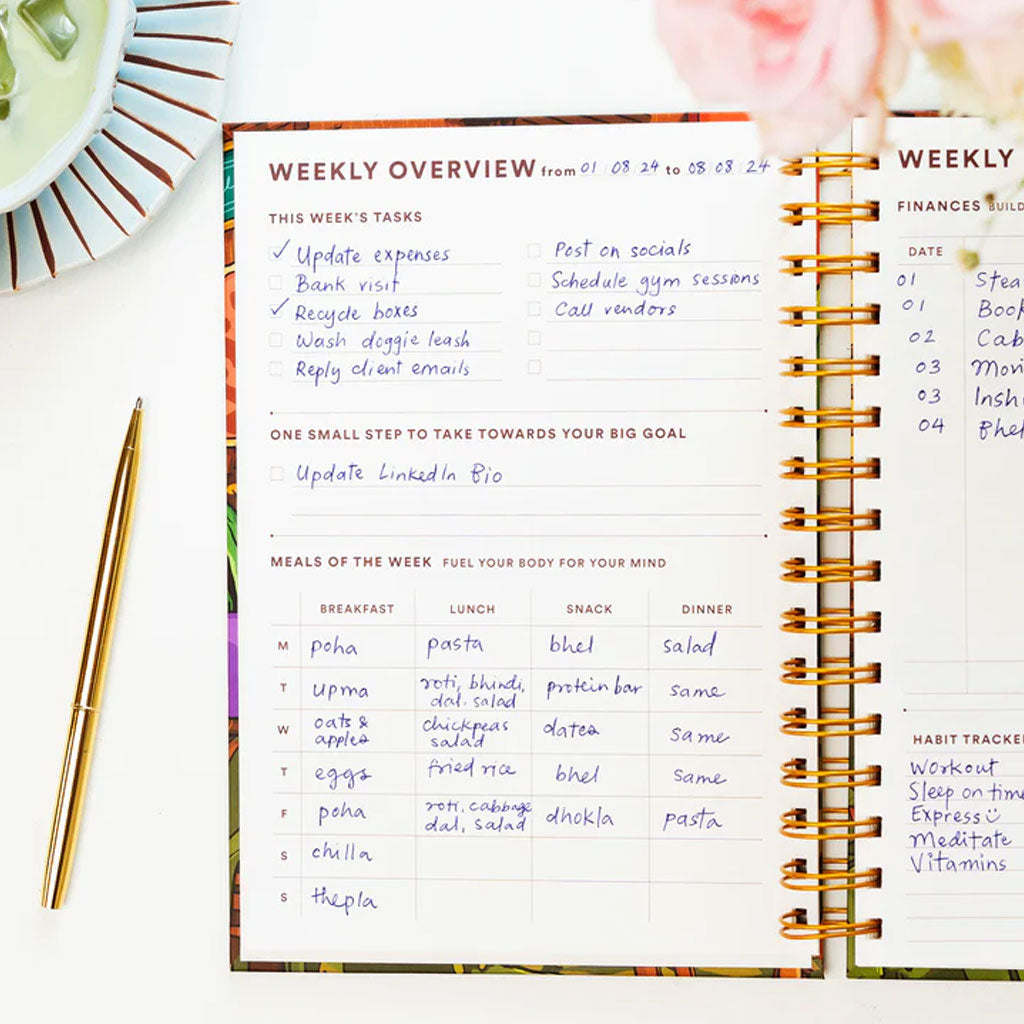 WEEKLY OVERVIEW from 01 08 24 to 08 08 24
THIS WEEK'S TASKS
Update expenses
Bank visit
Recycle boxes
Wash doggie leash
Reply client emails
Post on socials
Schedule gym sessions
Call vendors
ONE SMALL STEP TO TAKE TOWARDS YOUR BIG GOAL
Update LinkedIn Bio
MEALS OF THE WEEK FUEL YOUR BODY FOR YOUR MIND
BREAKFAST LUNCH SNACK DINNER
M poha pasta bhel salad
T upma roti, bhindi, dal. salad protein bar same
W oats & apples chickpeas salad dates same
T eggs fried rice bhel same
F poha roti, cabbage dal, salad dhokla pasta
S chilla
S thepla
WEEKLY
FINANCES BUILD
DATE
01 Stea
01 Book
02 Cab
03 Movi
03 Insh
04 Bhel
HABIT TRACKER
Workout
Sleep on time
Express
Meditate
Vitamins